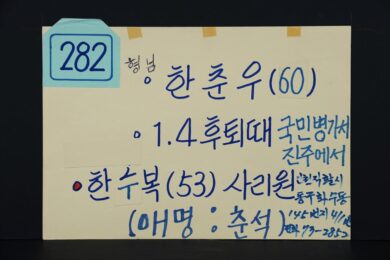 282
형님
• 한춘우(60)
• 1.4후퇴때 국민병가서
진주에서
• 한수복(53) 사리원
동구화수동
(애명: 춘석)
73-2852